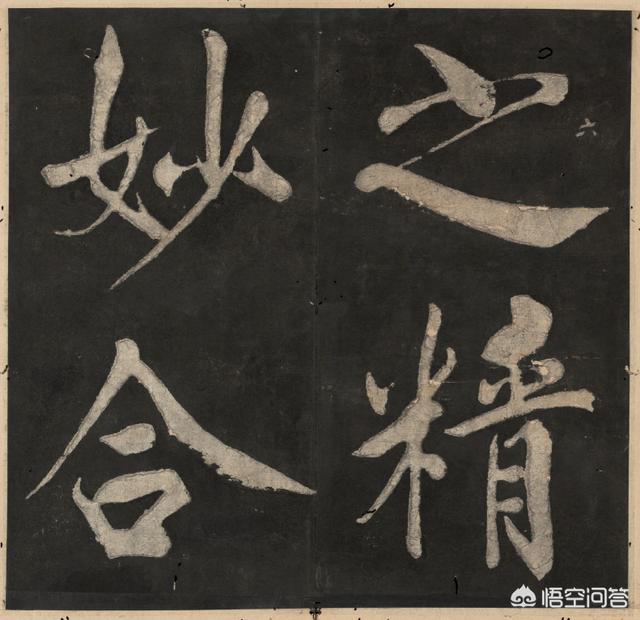 之精
六
妙合
悟空问答